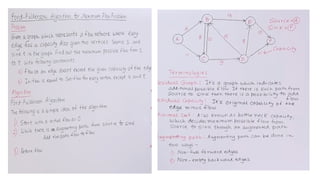 Ford-Fulkerson Algorithm for Maximum Flow Problem
Given a graph which represents a flow network where every
edge has a capacity. Also given two vertices Source S and
sink t in the graph. Find out the maximum possible flow from S
to t with following constraints
a) Flow on an edge doesn't exceed the given capacity of the edge
b) In flow is equal to out flow for every vertex except s and t
Algorithm
Ford-Fulkerson Algorithm
The following is a simple idea of the algorithm
1) Start with initial flow as 0
2) While there is an augmenting path from source to sink
Add this path flow to flow
3) Return flow
Source = A
Sink = F
Capacity
Terminologies
Residual Graph : It's a graph which indicates
additional possible flow. If there is such path from
source to sink then there is a possibility to add
flow
Residual Capacity : It's original capacity of the
edge minus flow
Minimal Cut : Also known as bottle neck capacity,
which decides maximum possible flow from
source to sink through an augmented path
Augmenting path : Augmenting path can be done in
two ways :-
1) Non-full forward edges
2) Non-empty backward edges